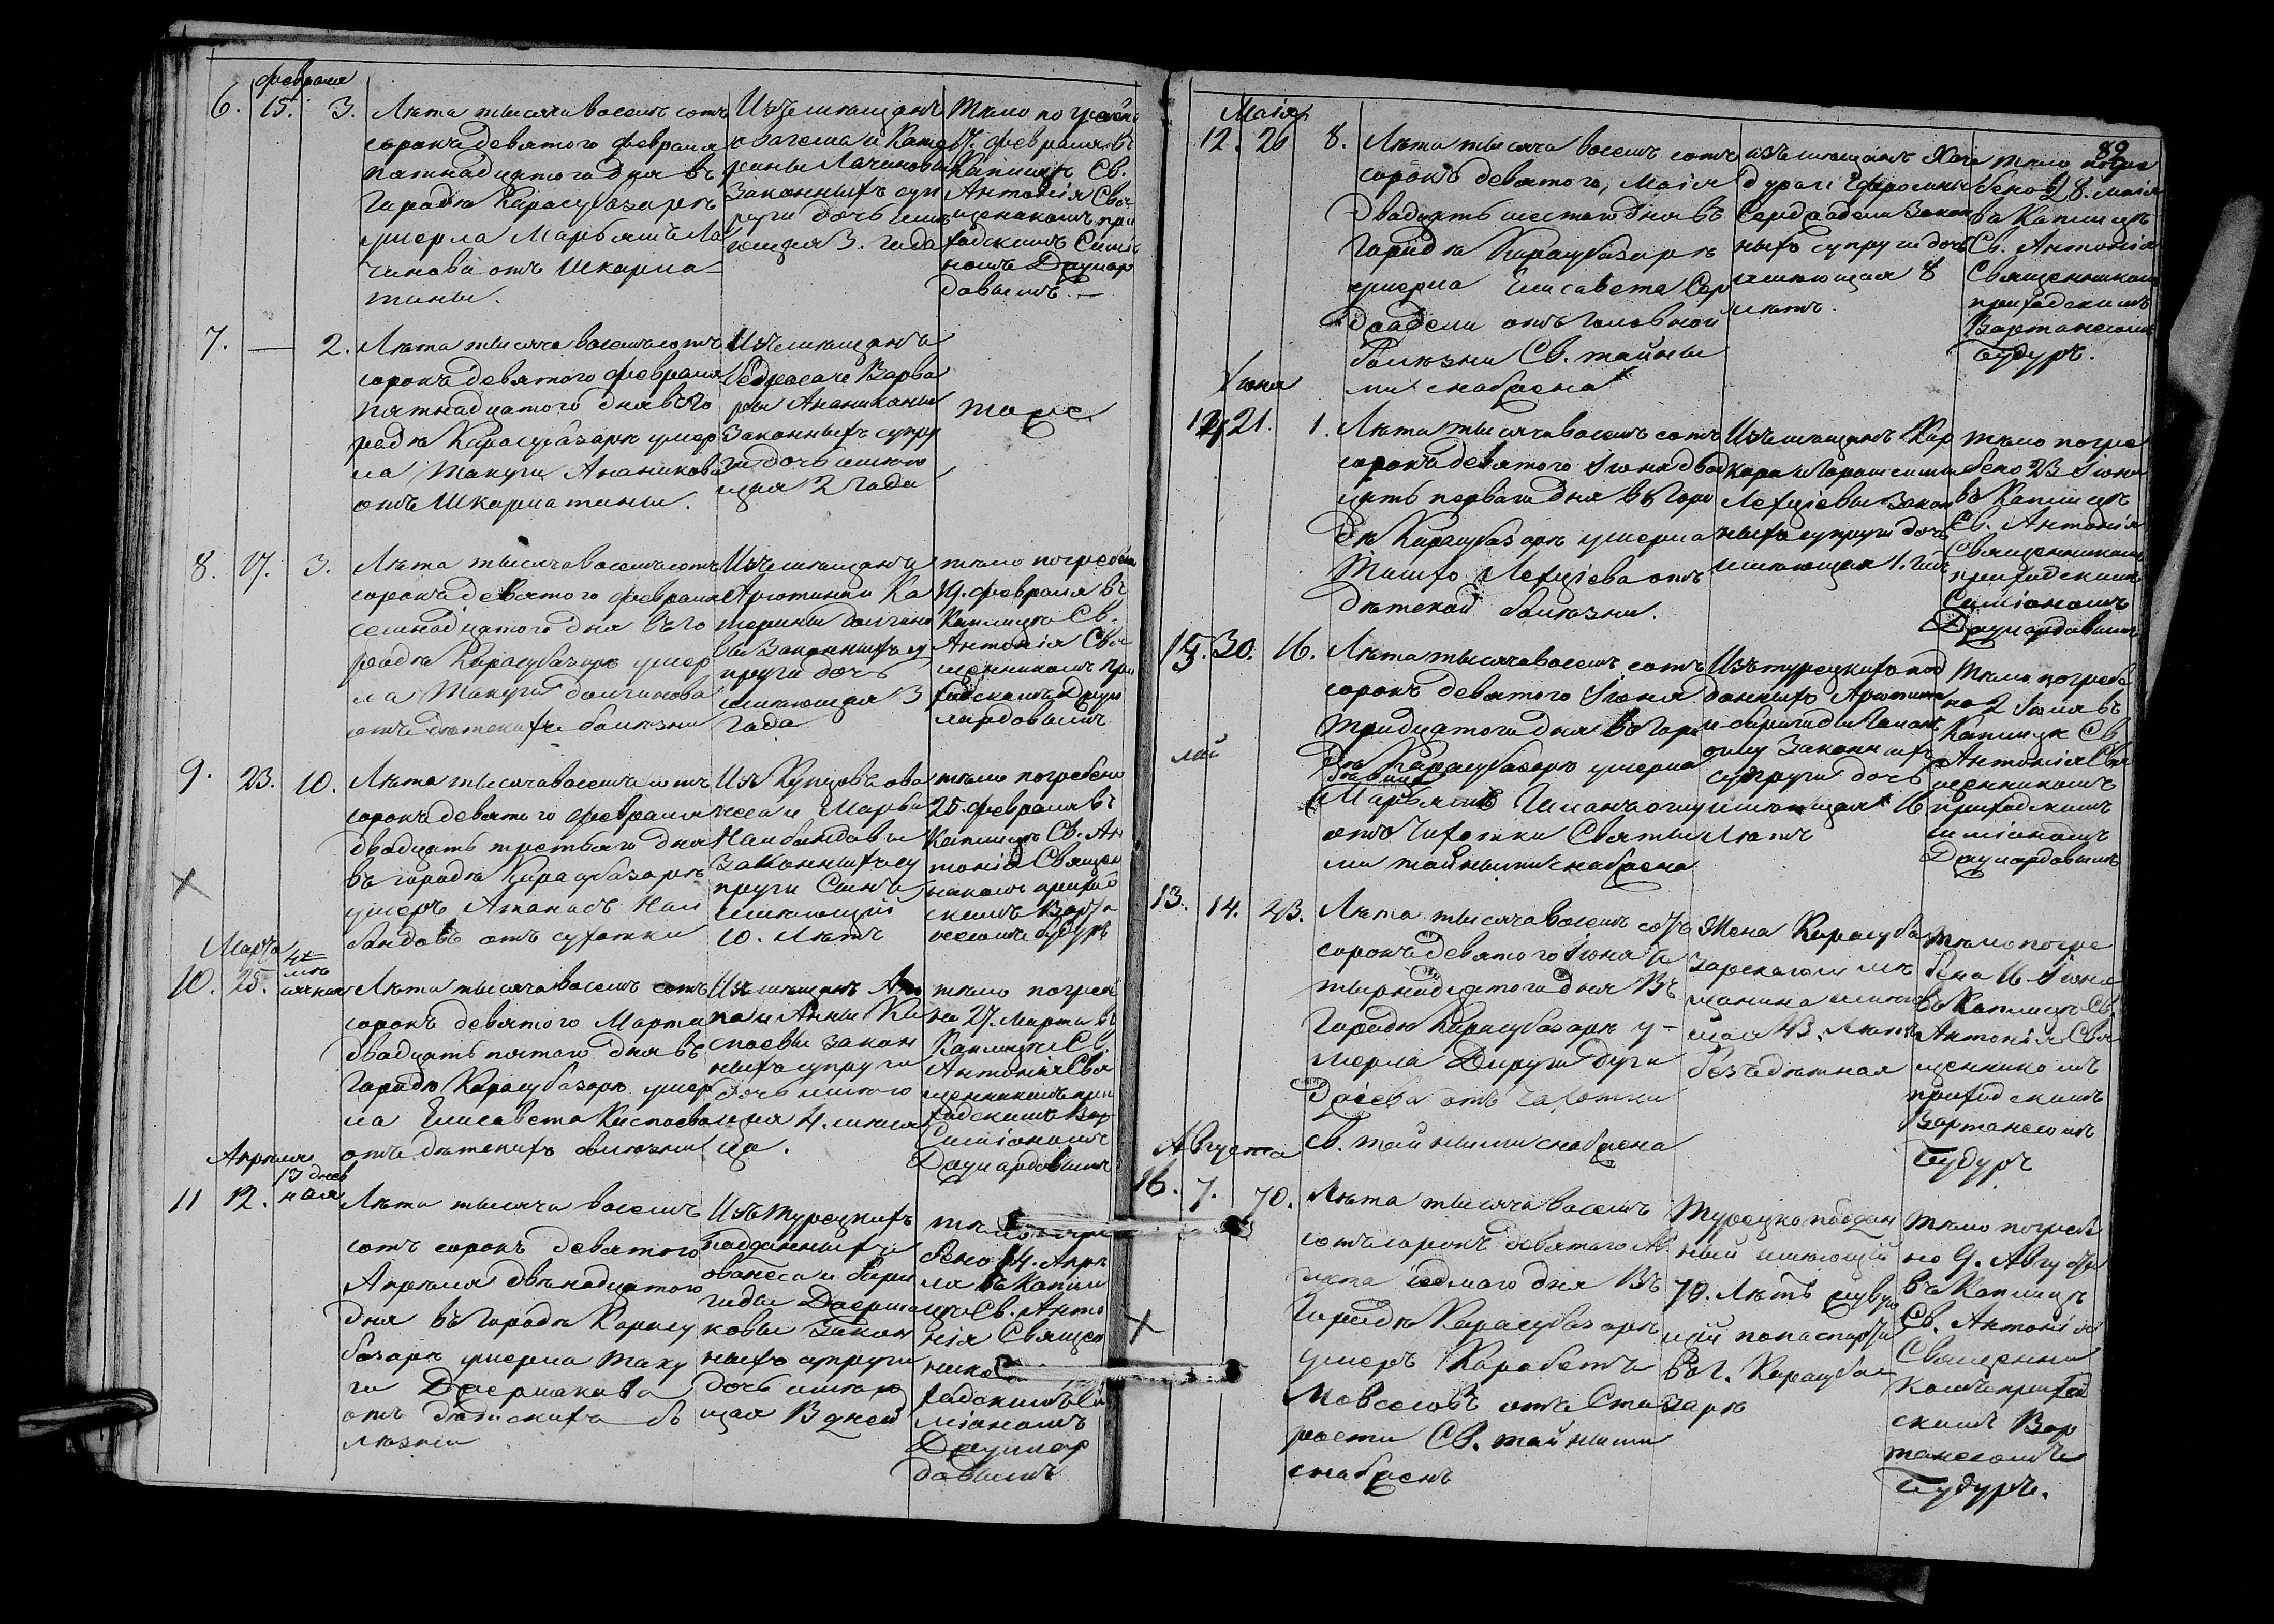 Февраля
6. 15. 3.
Лѣта тысяча восемь сотъ
сорокъ девятого февраля
пятнадцатого дня въ
Городѣ Карасубазарѣ
умерла Марьямъ Ла
чинова отъ Шкарла
тины.
Изъ мещанъ
и Кате
рины Лачиновы
Законныхъ суп
руги дочь имѣ
ющая 3. года
тѣло погребено
17. февраля въ
Каплицѣ Св.
Антонія Свя
щенникомъ при
ходскимъ Симіо
номъ Даулар
довымъ. —
7. — 2.
Лѣта тысяча восемь сотъ
сорокъ девятого февраля
пятнадцатого дня въ го
родѣ Карасубазарѣ умер
ла Такуги Ананикова
отъ Шкарлатины.
Изъ мещанъ
Бедросаи Варва
ры Ананиковы
Законныхъ супру
ги дочь имѣю
щая 2 года
тоже
8. 17. 3.
Лѣта тысяча восемь сотъ
сорокъ девятого февраля
семнадцатого дня въ го
родѣ Карасубазарѣ умер
ла Такуги Долгинова
отъ дѣтскихъ болѣзни
Изъ мещанъ
Арютина и Ка
терины Долгино
вы Законныхъ су
пруги дочь
имѣющая 3
года
тѣло погребено
19. февраля въ
Каплицѣ Св.
Антонія Свя
щенникомъ при
ходскимъ Даул
лардовымъ
9. 23. 10.
Лѣта тысяча восемь сотъ
сорокъ девятого февраля
двадцать третьяго дня
въ городѣ Карасубазарѣ
умеръ Атанасъ Нал
бандовъ отъ сухотки
Изъ Купцовъ ова
неса и Марьи
Налбандовы
Законныхъ су
пруги Сынъ
имѣющій
10. Лѣтъ
тѣло погребено
25. февраля въ
Каплицѣ Св. Ан
тонія Священ
никомъ приход
скимъ Варта
несомъ Будуръ
Марта
10. 25. 4х мѣ
сячная
Лѣта тысяча восемь сотъ
сорокъ девятого Марта
двадцать пятого дня въ
Городѣ Карасубазарѣ умер
ла Елисавета Каспоева
отъ дѣтскихъ болѣзни
Изъ мещанъ
и Анны Ка
споевы закон
ныхъ супруги
дочь имѣю
щая 4. мѣся
ца.
тѣло погребе
но 27. Марта въ
Каплицѣ Св.
Антонія Свя
щенникомъ при
ходскимъ Вар
Симіономъ
Даулардовымъ
Апреля
11 12. 13 днев
ная
Лѣта тысяча восемь
сотъ сорокъ девятого
Апреля двѣнадцатого
дня въ Городѣ Карасу
базарѣ умерла Таку
ги Даермакова
отъ дѣтскихъ бо
лѣзни
Изъ Турецкихъ
Подданныхъ
ованеса и
Даерма
ковы Закон
ныхъ супруги
дочь имѣю
щая 13 дней
бено 14. Апрѣ
ля въ Капли
цѣ Св. Анто
нія Священ
нико
ходскимъ Си
міономъ
Даулар
довымъ
89
Маія
12. 26 8.
Лѣта тысяча восемь сотъ
сорокъ девятого, Маія
двадцать шестого дня въ
городѣ Карасубазарѣ
умерла Елисавета Сер
даадели отъ головной
болѣзни Св. тайны
ми снабжена
изъ мещанъ Хача
дура и Ефросины
Сердаадели Закон
ныхъ супруги дочь
имѣющая 8
лѣтъ.
тѣло погре
бено 28. маія
въ Каплицѣ
Св. Антонія
Священникомъ
приходскимъ
Вартанесомъ
Будуръ.
Іюня
14 21. 1.
Лѣта тысяча восемь сотъ
сорокъ девятого Іюня двад
цать первого дня въ Горо
дѣ Карасубазарѣ умерла
Лехціева отъ
дѣтской болѣзни.
Изъ мещанъ
Лехціевы Закон
ныхъ супруги дочь
имѣющая 1. годъ
тѣло погре
бено 23 Іюня
въ Каплицѣ
Св. Антонія
Священникомъ
приходскимъ
Симіономъ
Даулардовымъ
15. 30. 16.
Лѣта тысяча восемь сотъ
сорокъ девятого Іюня
тридцатого дня въ Горо
дѣ Карасубазарѣ умерла
дѣвица
Марьямъ
отъ Чахотки Святы
ми тайными снабжена
Изъ турецкихъ под
данныхъ Арютина
оглу Законныхъ
супруги дочь
имѣющая 16
Лѣтъ
Тѣло погребе
но 2 Іюля въ
Каплицѣ Св
Антонія Свя
щенникомъ
приходскимъ
Симіономъ
Даулардовымъ
13. 14. 43.
Лѣта тысяча восемь сотъ
сорокъ девятого Іюня че
тырнадцатого дня Въ
Городѣ Карасубазарѣ у-
мерла Дируги
отъ Чахотки
Св. тайными снабжена
Жена Карасуба
зарскаго мѣ
щанина имѣю
щая 43. лѣтъ
бездѣтная
тѣло погре
бено 16 Іюня
въ Каплицѣ Св.
Антонія Свя
щенникомъ
приходскимъ
Вартанесомъ
Будуръ
Августа
16. 7. 70.
Лѣта тысяча восемь
сотъ сорокъ девятого Ав
густа седмого дня Въ
Городѣ Карасубазарѣ
умеръ Карабетъ
Мовсесовъ отъ Ста
рости Св. тайными
снабженъ
Турецкоподдан
ный имѣющій
70. Лѣтъ живу
щій по паспорту
въ г. Карасуба
зарѣ
тѣло погребе
но 9. Августа
въ Каплицѣ
Св. Антонія
Священни
комъ приход
скимъ Вар
танесомъ
Будуръ.